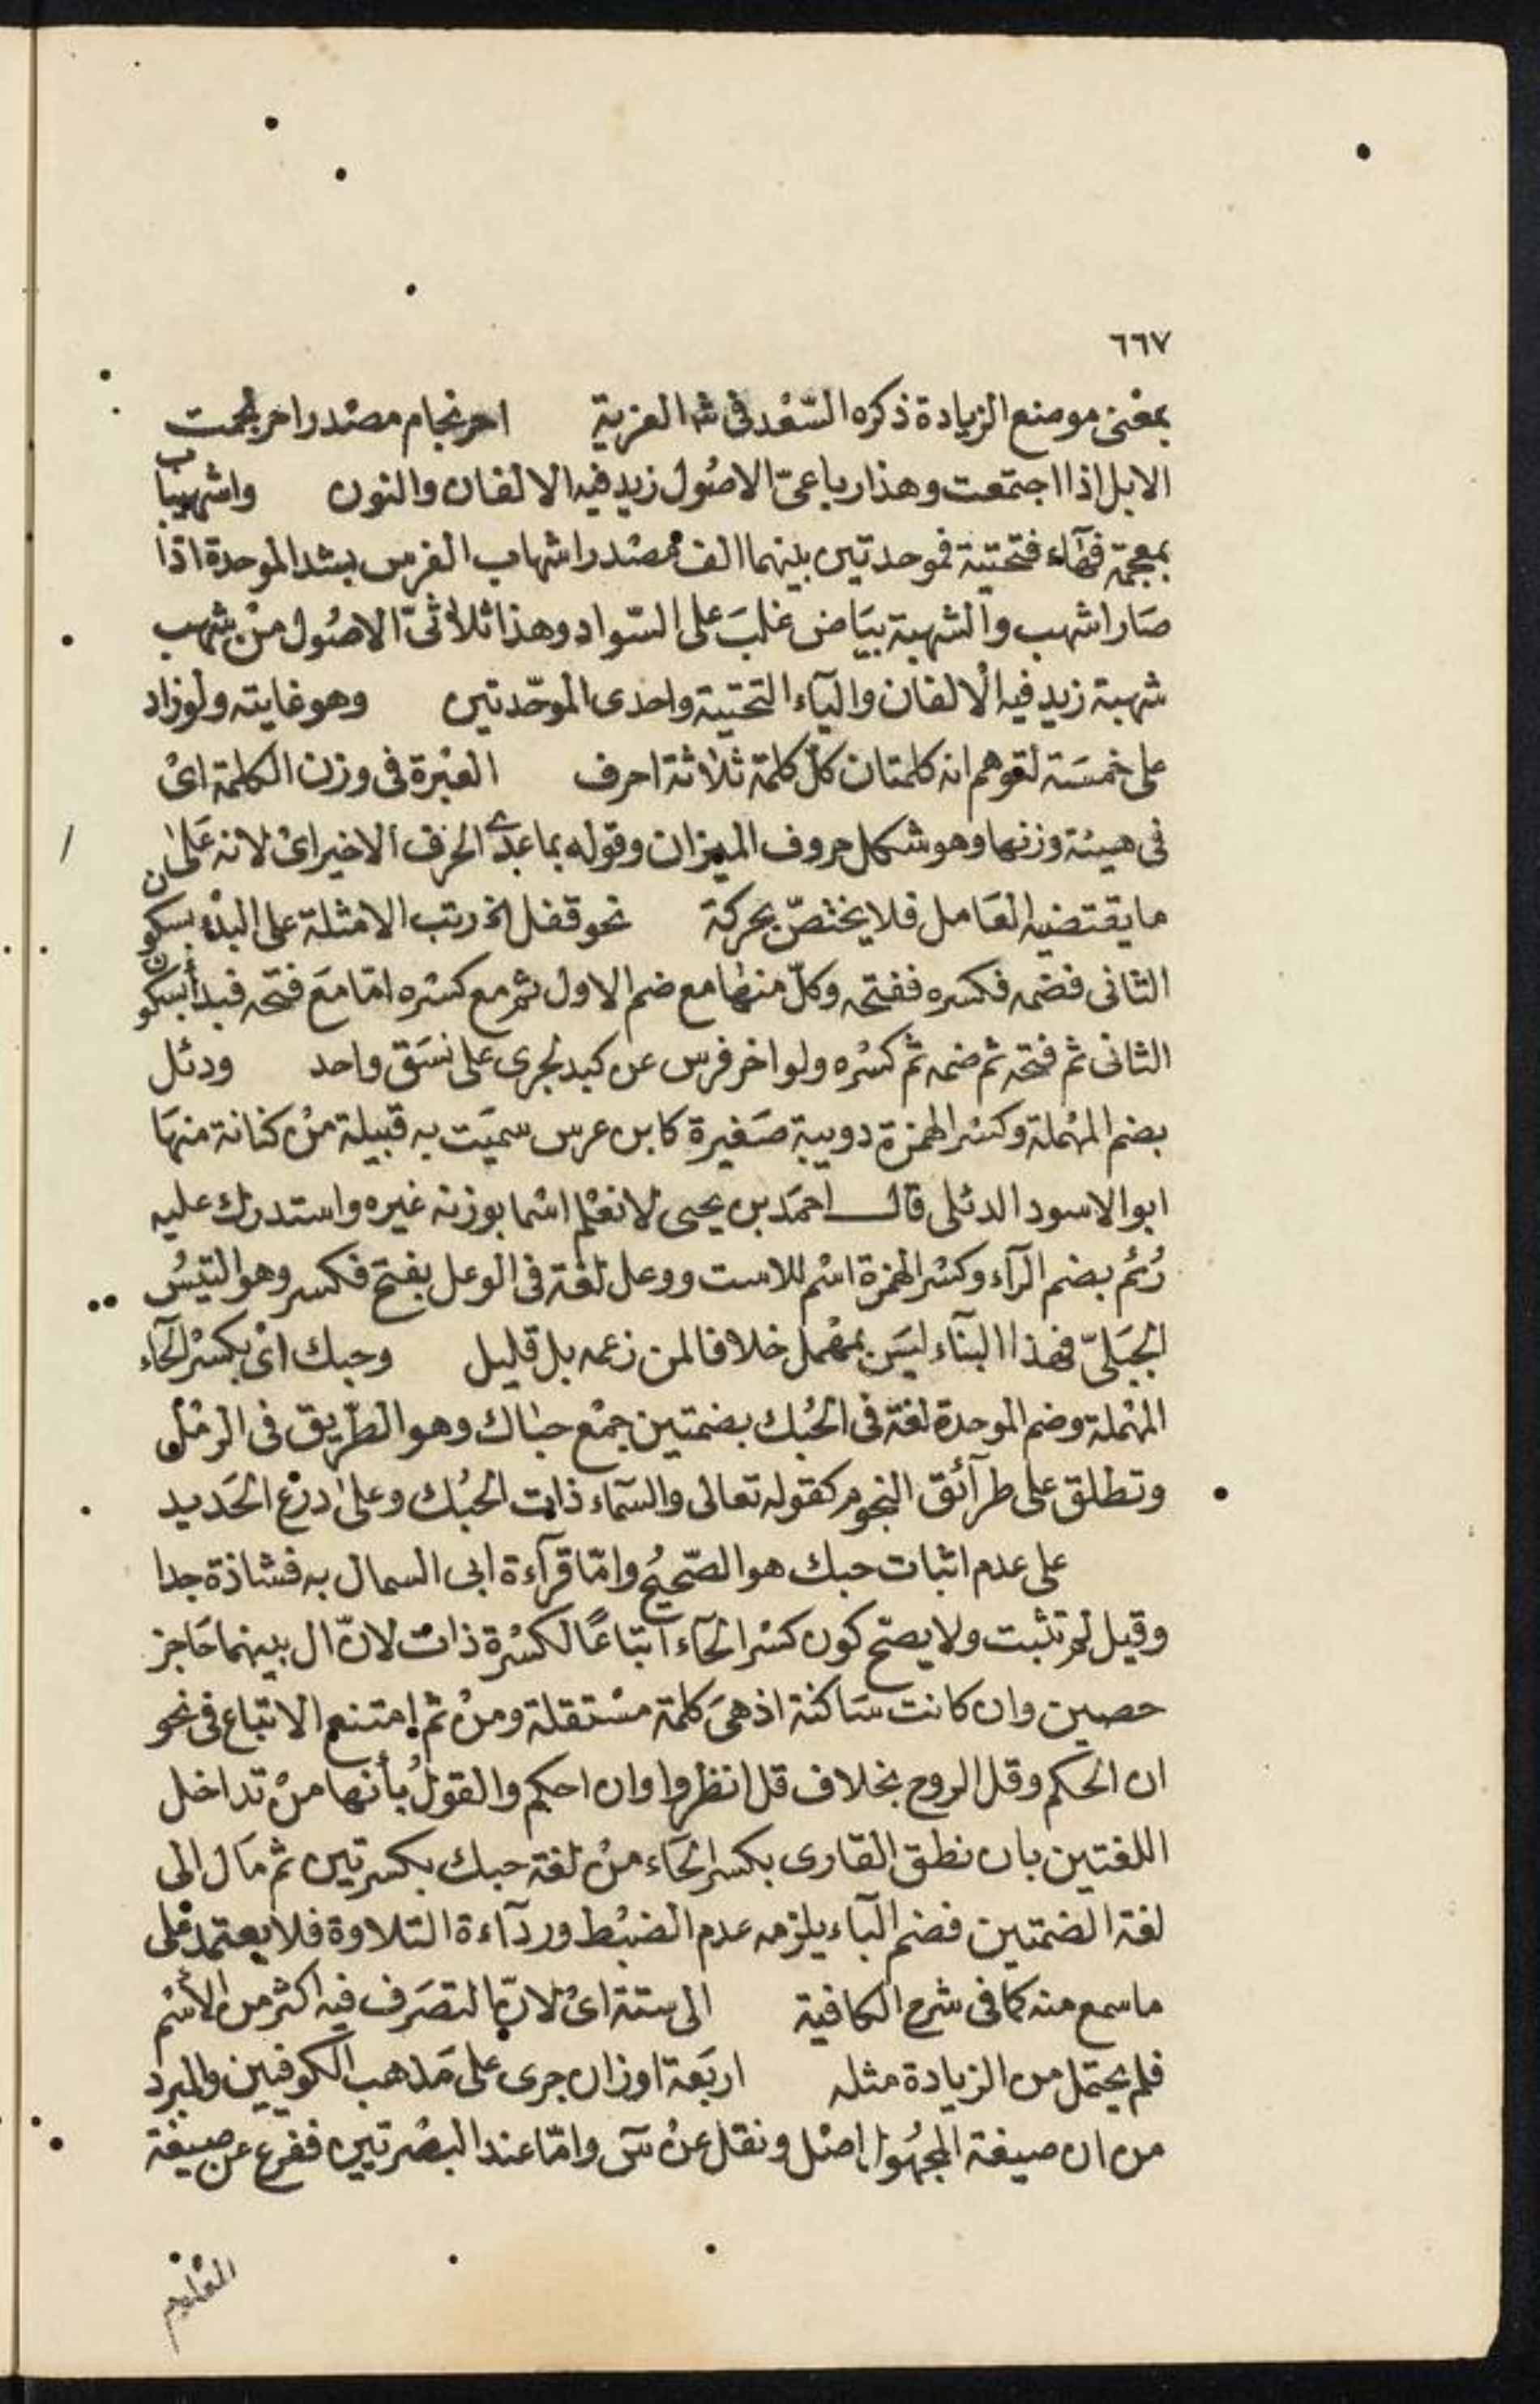 ٦٦٧
بمعْنى موضع الزيادة ذكره السّعْد فى شه العزية احرنجام مصْدر احرنجمت
الابل اذا اجتمعت وهذا رباعىّ الاصُول زيد فيه الالفان والنون واشهيباب
بمعجمة فهآء فتحتية فموحدتين بينهما الف مصْدر اشهاب الفرس بشد الموحدة اذا
صَار اشهب والشهبة بيَاض غلبَ على السّواد وهذا ثلاثىّ الاصُول منْ شهب
شهبة زيد فيه الالفان واليآء التحتية واحدى الموحّدتين وهو غايته ولو زاد
على خمسَة لتوهم انه كلمتان كلّ كلمة ثلاثة احرف العبْرة فى وزن الكلمة اىْ
فى هيئة وزنها وهو شكل حروف الميزان وقوله بما عدى الحرْف الاخير اىْ لانه عَلىٰ
ما يقتضيه العَامل فلا يختصّ بحركة نحو قفل الخ رتب الامثلة على البدْء بسكون
الثانى فضمه فكسره ففتحه وكلّ منها مع ضم الاول ثم مع كسْره امّا مَع فتحه فبدأ بسكون
الثانى ثم فتحه ثم ضمه ثم كسْره ولو اخر فرس عن كبد لجرى على نسَق واحد ودئل
بضم المهْملة وكسْر الهمزة دويبة صَغيرة كابن عرس سميَت به قبيلة منْ كنانة منهَا
ابو الاسود الدئلى قال احمَد بن يحيى لا نعْلم اسْما بوزنه غيره واستدرك عليه
رُئم بضم الرآء وكسْر الهمزة اسْم للاست ووعل لغة فى الوعل بفتح فكسر وهو التيْسُ
الجبَلىّ فهذا البنآء ليسَ بمهْمل خلافا لمن زعمه بل قليل وحبك اىْ بكسْر الحآء
المهْملة وضم الموحدة لغة فى الحُبك بضمتين جمْع حباك وهو الطّريق فى الرمْل
وتطلق على طرآئق النجوم كقوله تعالى والسّمآء ذات الحبُك وعلى درْع الحَديد
على عدم اثبات حبك هو الصّحيْحُ وامّا قرآءة ابى السمال به فشاذة جدا
وقيل لم تثبت ولا يصحّ كون كسْر الحآء اتباعًا لكسْرة ذات لانّ ال بينهما حَاجز
حصين وان كانت سَاكنة اذ هىَ كلمة مسْتقلة ومنْ ثم امتنع الاتباع فى نحو
ان الحكم وقل الروح بخلاف قل انظروا وان احكم والقوْلُ بأنها منْ تداخل
اللغتين بان نطق القارى بكسر الحَآء منْ لغة حبك بكسرتين ثم مَال الى
لغة الضمتين فضم البآء يلزمه عدم الضبْط وردآءة التلاوة فلا يعتمد عْلى
ما سمع منه كما فى شرح الكافية الى ستة اىْ لانّ التصَرف فيه اكثر من الاسْم
فلم يحتمل من الزيادة مثله اربَعة اوزان جرى على مَذهب الكوفيين والمبرد
من ان صيغة المجهُول اصْل ونقل عنْ سَ وامّا عند البصْرتيين ففرع عن صيغة
المعْلوم